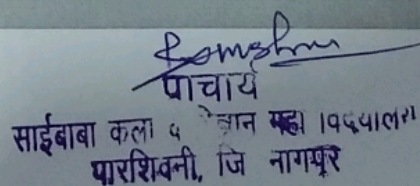 प्राचार्य
साईबाबा कला व विज्ञान महाविद्यालय
पारशिवनी, जि नागपूर